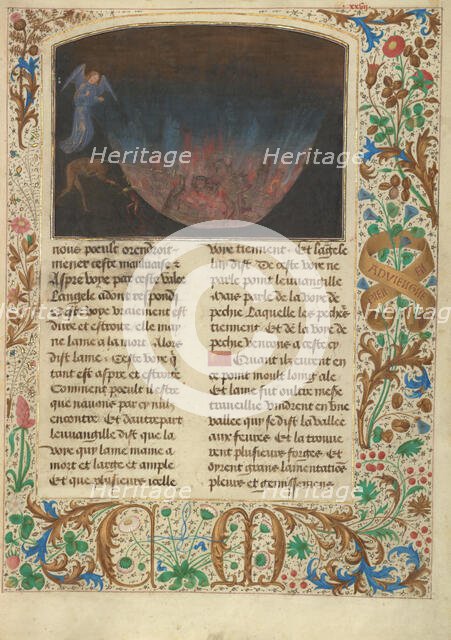 xxvii
nous poeult orendroit
mener ceste mauuaise &
Aspre voye par ceste valee
Langele adont respondi
Que voye vraiement est
dure et estroite elle may
ne lame a la mort Alors
dist lame Ceste voye q
tant est aspre et estroite
Comment poeult il estre
que nauons par cy nul
encontre Et dautrepart
leuuangille dist que la
voye qui lame maine a
mort est large et ample
Et que plusieurs icelle
voye tiennent Et langele
luy dist De ceste voye ne
parle point leuuangille
Mais parle de la voye de
peche Laquelle les pecheurs
tiennent Et de la voye de
peche venrons a ceste cy
Quant ilz eurent en
ce point moult longt ale
Et lame fut oultre mesure
trauellie vindrent en vne
vallee qui se dist la vallee
aux feures Et la trouue
rent plusieurs forges Et
oirent grans lamentations
pleurs et gemissemens
ADVIENGNE
C M
Heritage
Heritage
Heritage
Heritage
Heritage
Heritage
C